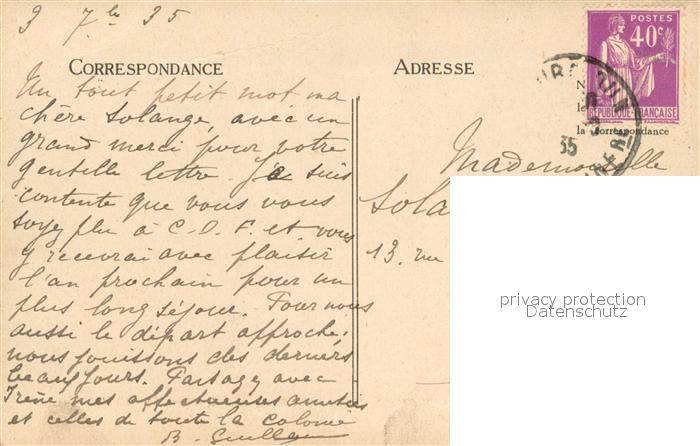 3 7bre 35
POSTES
40c
CORRESPONDANCE
ADRESSE
REPUBLIQUE FRANÇAISE
la correspondance
35
Un tout petit mot ma
chère Solange, avec un
grand merci pour votre
gentille lettre. Je suis
contente que vous vous
soyez plu à C.D.F. et vous
y recevrai avec plaisir
l'an prochain pour un
plus long séjour. Pour nous
aussi le départ approche,
nous jouissons des derniers
beaux jours. Partagez avec
Irène mes affectueuses amitiés
et celles de toute la colonie
Mademoiselle
Sola
13, rue
privacy protection
Datenschutz